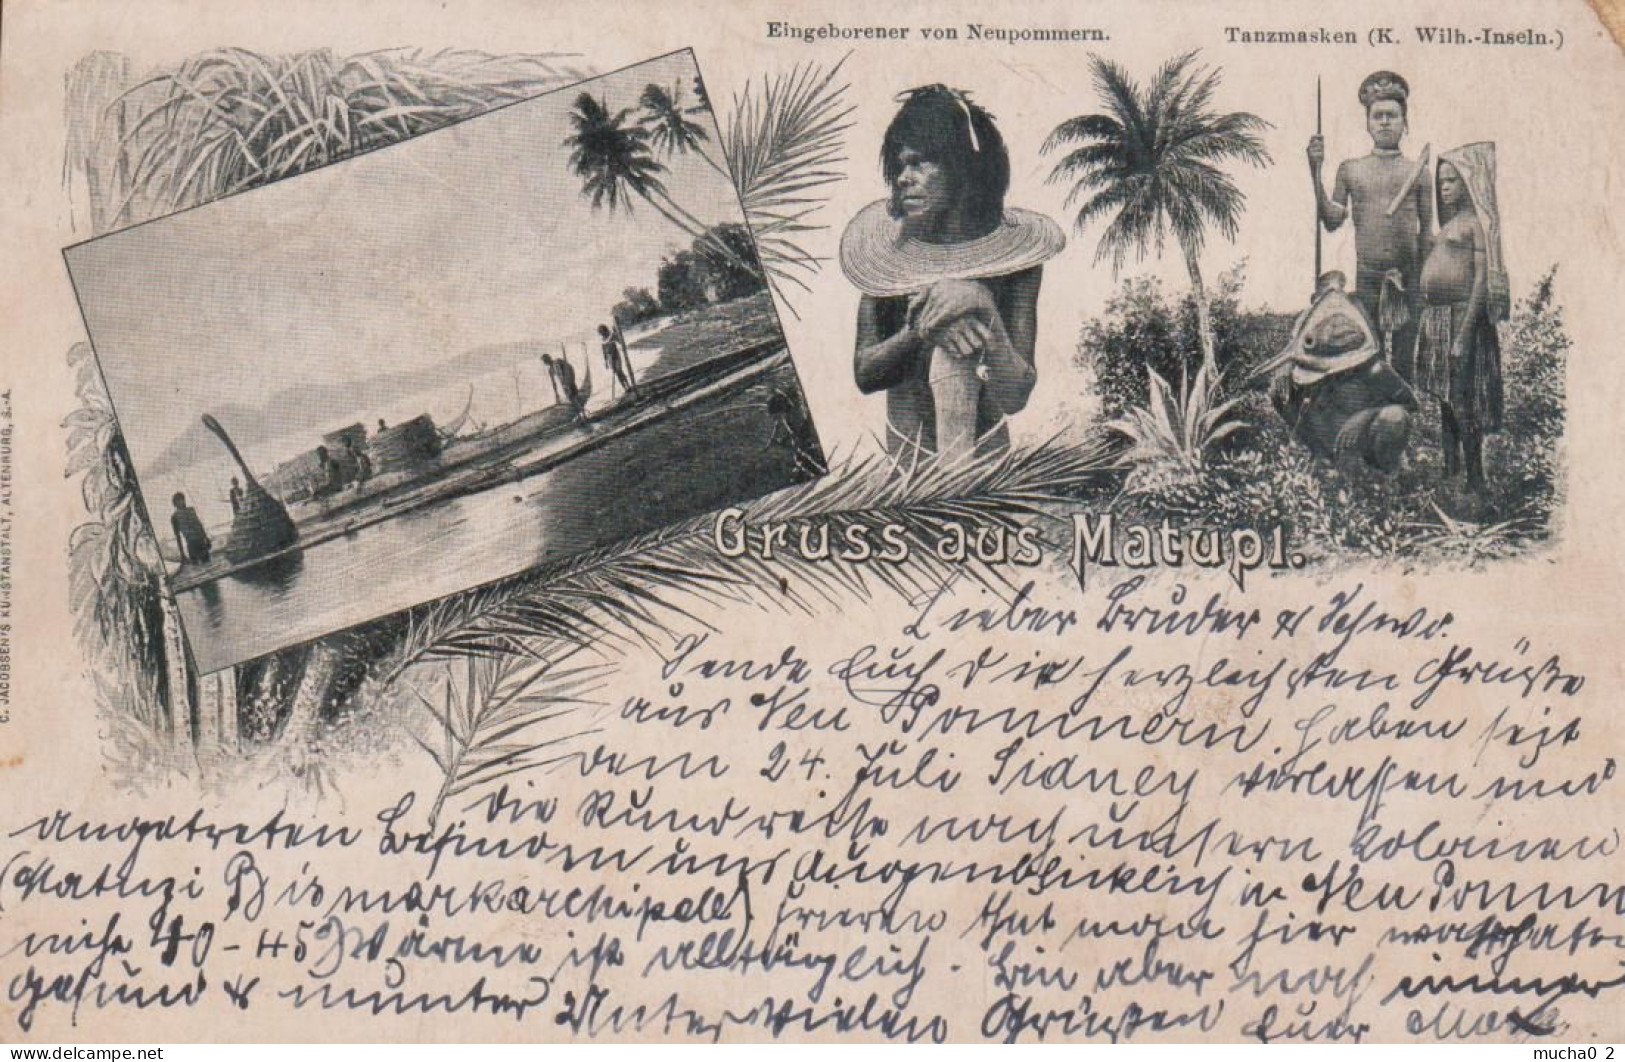 Eingeborener von Neupommern.
Tanzmasken (K. Wilh.-Inseln.)
C. JACOBSEN'S KUNSTANSTALT, ALTENBURG, S.-A.
Gruss aus Matupi.
Lieber Bruder & Schwo.
Sende Euch die herzlichsten Grüße
aus Neu Pommern, haben seit
dem 24. Juli Sidney verlassen und
die Rundreise nach unsern Kolonien
angetreten Befinden uns Augenblicklich in Neu Pomm
(Matupi Bismarkarchipell) frieren thut man hier
nicht 40-45° Wärme ist alltäglich. Bin aber noch immer
gesund & munter Unter vielen Grüßen Euer Max.
mucha0_2